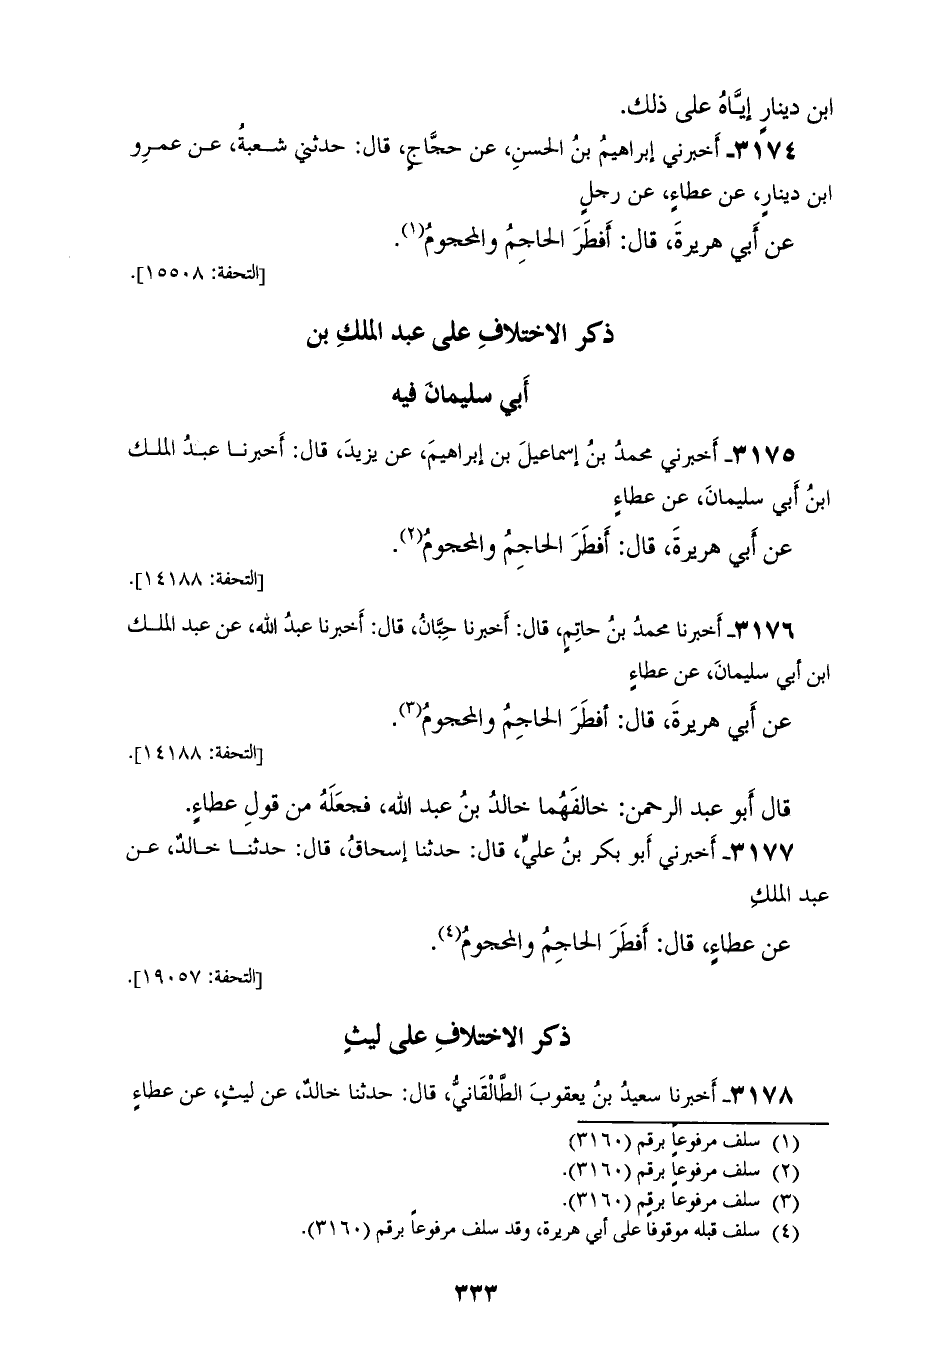 ابن دينارٍ إيَّاهُ على ذلك.
٣١٧٤ـ أَخبرني إبراهيمُ بنُ الحسنِ، عن حجَّاجٍ، قال: حدثني شـعبةُ، عـن عمـرِو
ابن دينارٍ، عن عطاءٍ، عن رجلٍ
عن أَبي هريرةَ، قال: أَفطَرَ الحاجِمُ والمحجومُ(١).
[التحفة: ١٥٥٠٨].
ذكر الاختلافِ على عبد الملكِ بن
أَبي سليمانَ فيه
٣١٧٥ـ أَخبرني محمدُ بنُ إسماعيلَ بن إبراهيمَ، عن يزيدَ، قال: أَخبرنـا عبـدُ الملـك
ابنُ أَبي سليمانَ، عن عطاءٍ
عن أَبي هريرةَ، قال: أَفطَرَ الحاجِمُ والمحجومُ(٢).
[التحفة: ١٤١٨٨].
٣١٧٦ـ أَخبرنا محمدُ بنُ حاتِمٍ، قال: أَخبرنا حِبَّانُ، قال: أَخبرنا عبدُ الله، عن عبد الملـك
ابن أبي سليمانَ، عن عطاءٍ
عن أَبي هريرةَ، قال: أفطَرَ الحاجِمُ والمحجومُ(٣).
[التحفة: ١٤١٨٨].
قال أَبو عبد الرحمن: خالفَهُما خالدُ بنُ عبد الله، فجعَلَهُ من قولِ عطاءٍ.
٣١٧٧ـ أَخبرني أَبو بكر بنُ عليٍّ، قال: حدثنا إسحاقُ، قال: حدثنـا خـالدٌ، عـن
عبد الملكِ
عن عطاءٍ، قال: أَفطَرَ الحاجِمُ والمحجومُ(٤).
[التحفة: ١٩٠٥٧].
ذكر الاختلافِ على ليثٍ
٣١٧٨ـ أَخبرنا سعيدُ بنُ يعقوبَ الطَّالْقَانيُّ، قال: حدثنا خالدٌ، عن ليثٍ، عن عطاءٍ
(١) سلف مرفوعاً برقم (٣١٦٠)
(٢) سلف مرفوعاً برقم (٣١٦٠).
(٣) سلف مرفوعاً برقم (٣١٦٠).
(٤) سلف قبله موقوفاً على أبي هريرة، وقد سلف مرفوعاً برقم (٣١٦٠).
٣٣٣